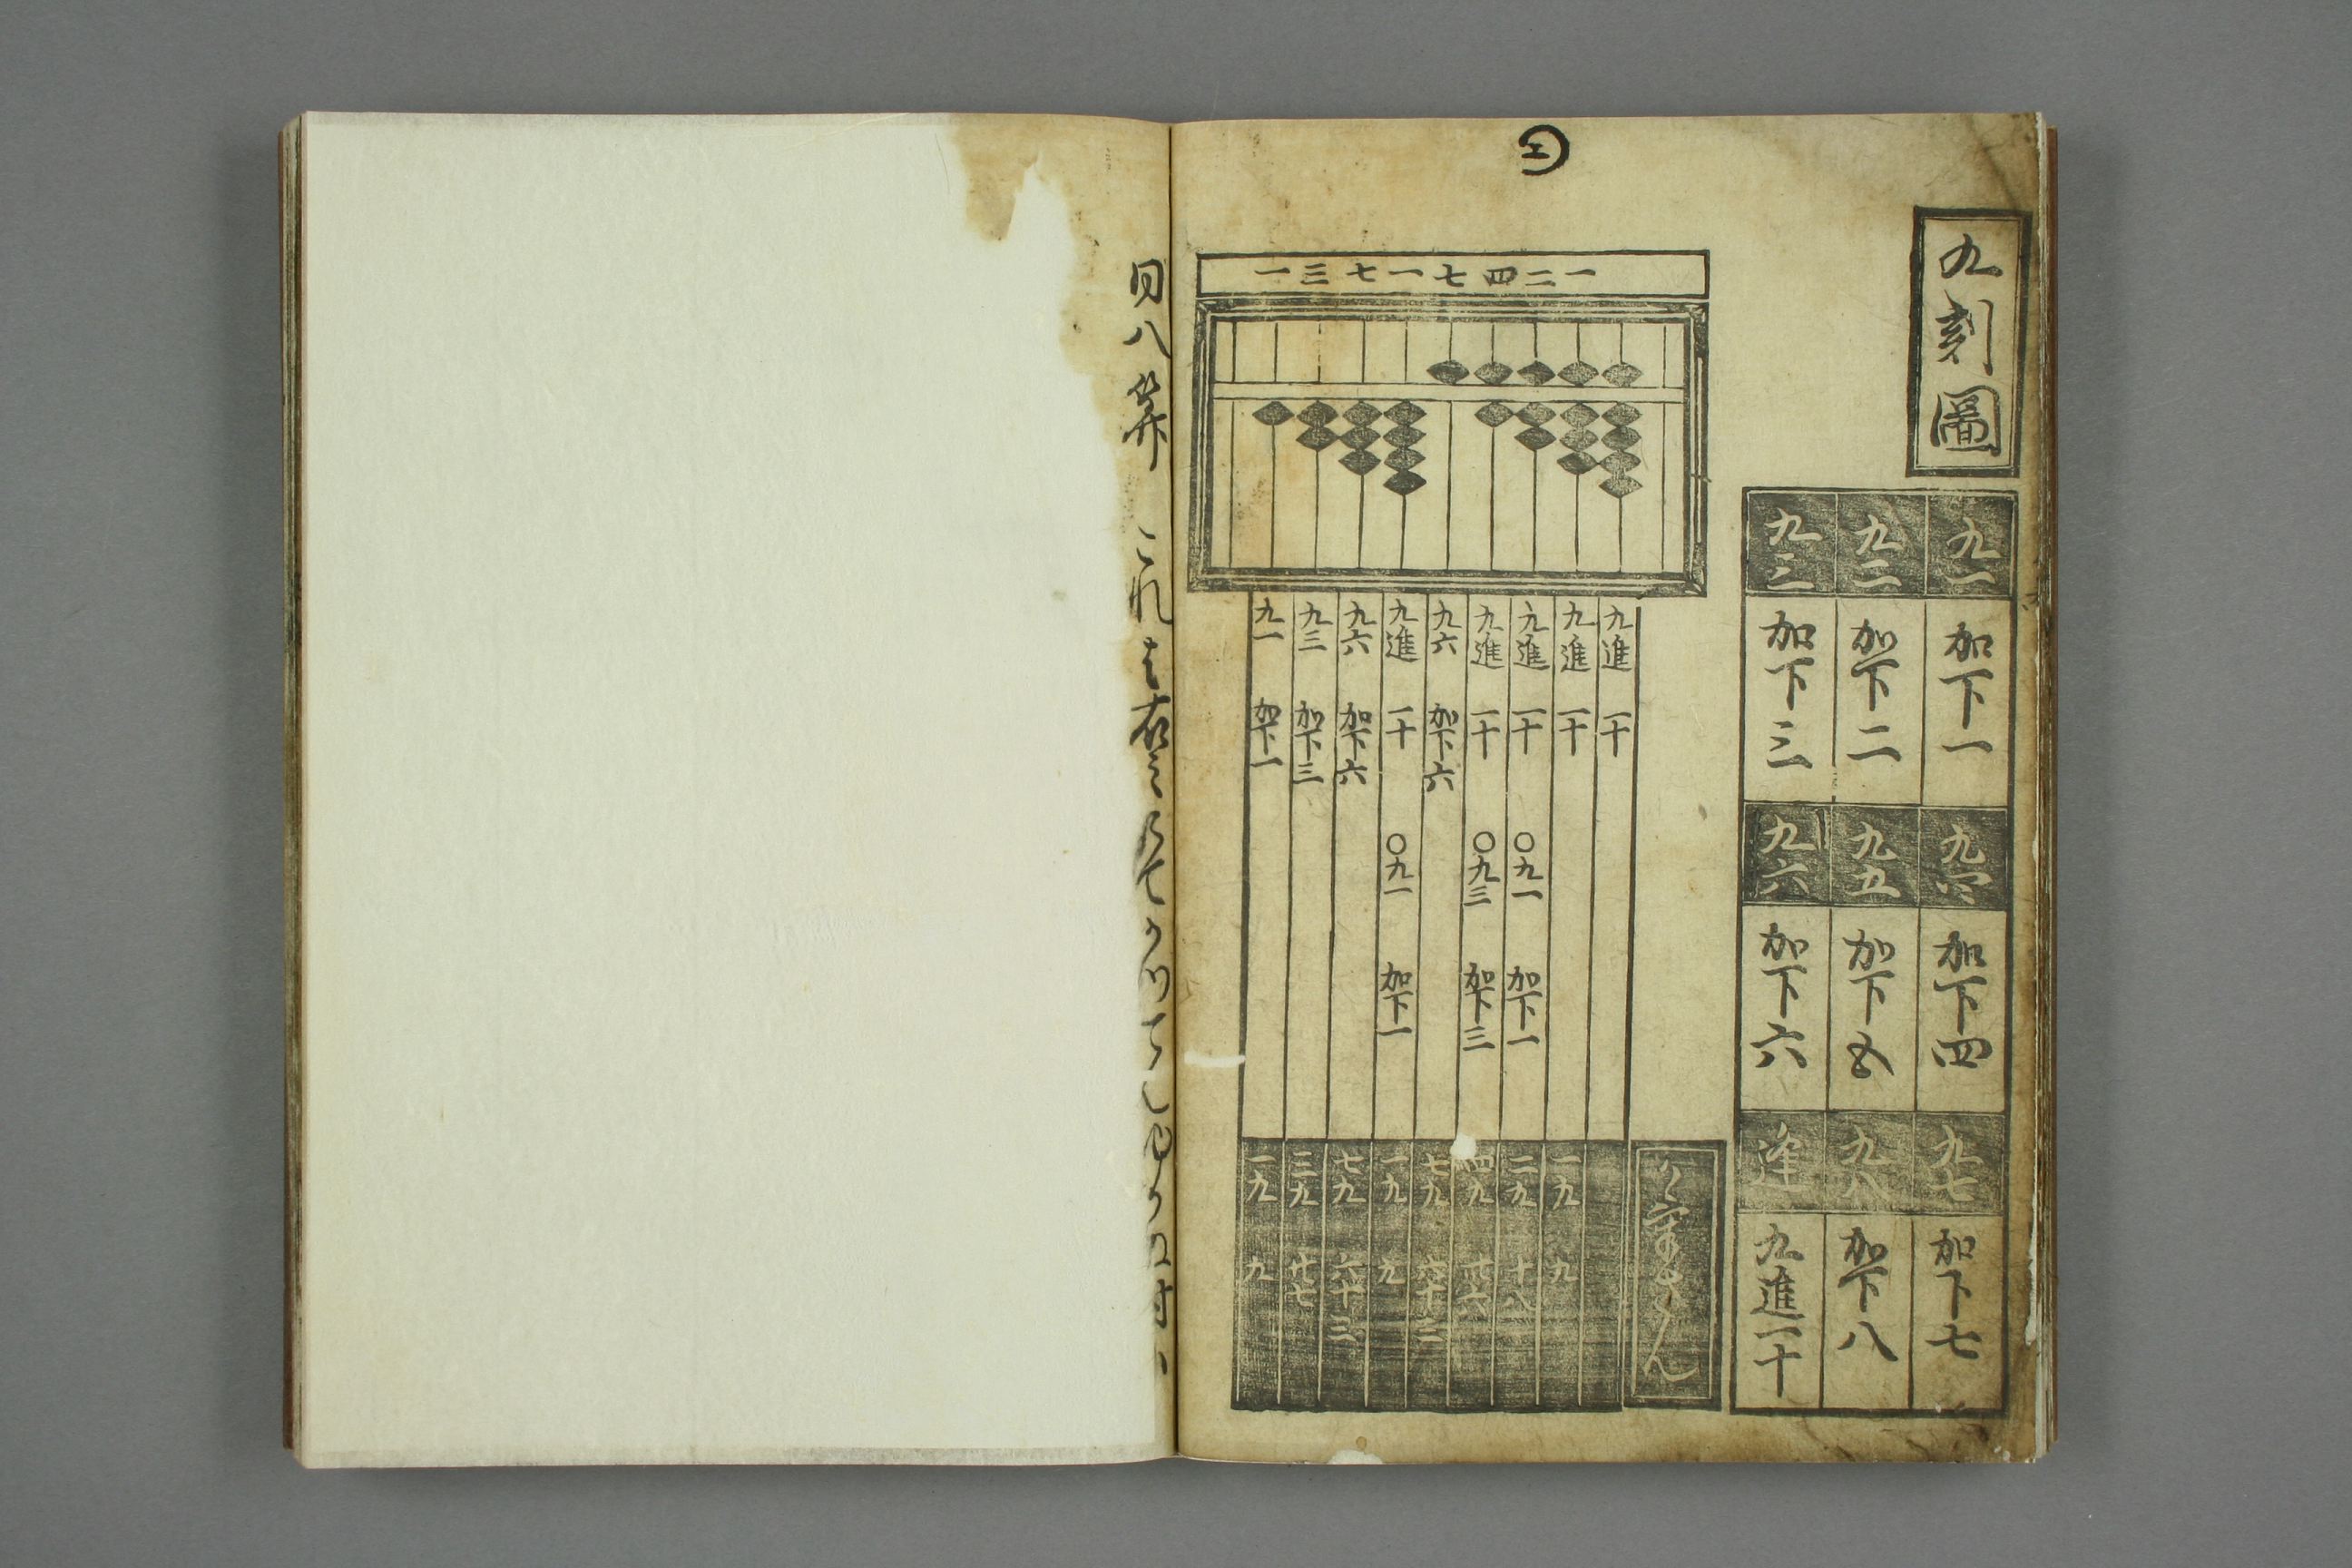 九刻圖
九一 加下一 九四 加下四 九七 加下七
九二 加下二 九五 加下五 九八 加下八
九三 加下三 九六 加下六 逢 九進一十
一三七一七四二一
九進 一十
九進 一十 一九 九
九進 一十 〇九一 加下一 二九 十八
九進 一十 〇九三 加下三 四九 卅六
九六 加下六 七九 六十三
九進 一十 〇九一 加下一 一九 九
九六 加下六 七九 六十三
九三 加下三 三九 廿七
九一 加下一 一九 九
同八算 これも右